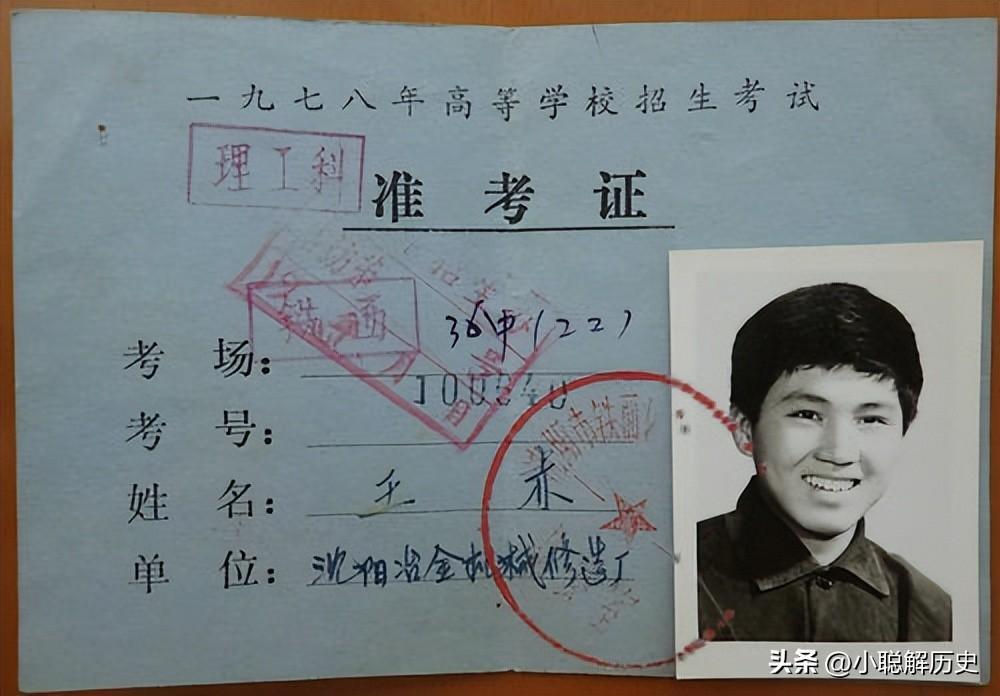 一九七八年高等学校招生考试
理工科
准考证
铁西
考场：36中(22)
考号：100540
姓名：王赤
单位：沈阳冶金机械修造厂
头条 @小聪解历史